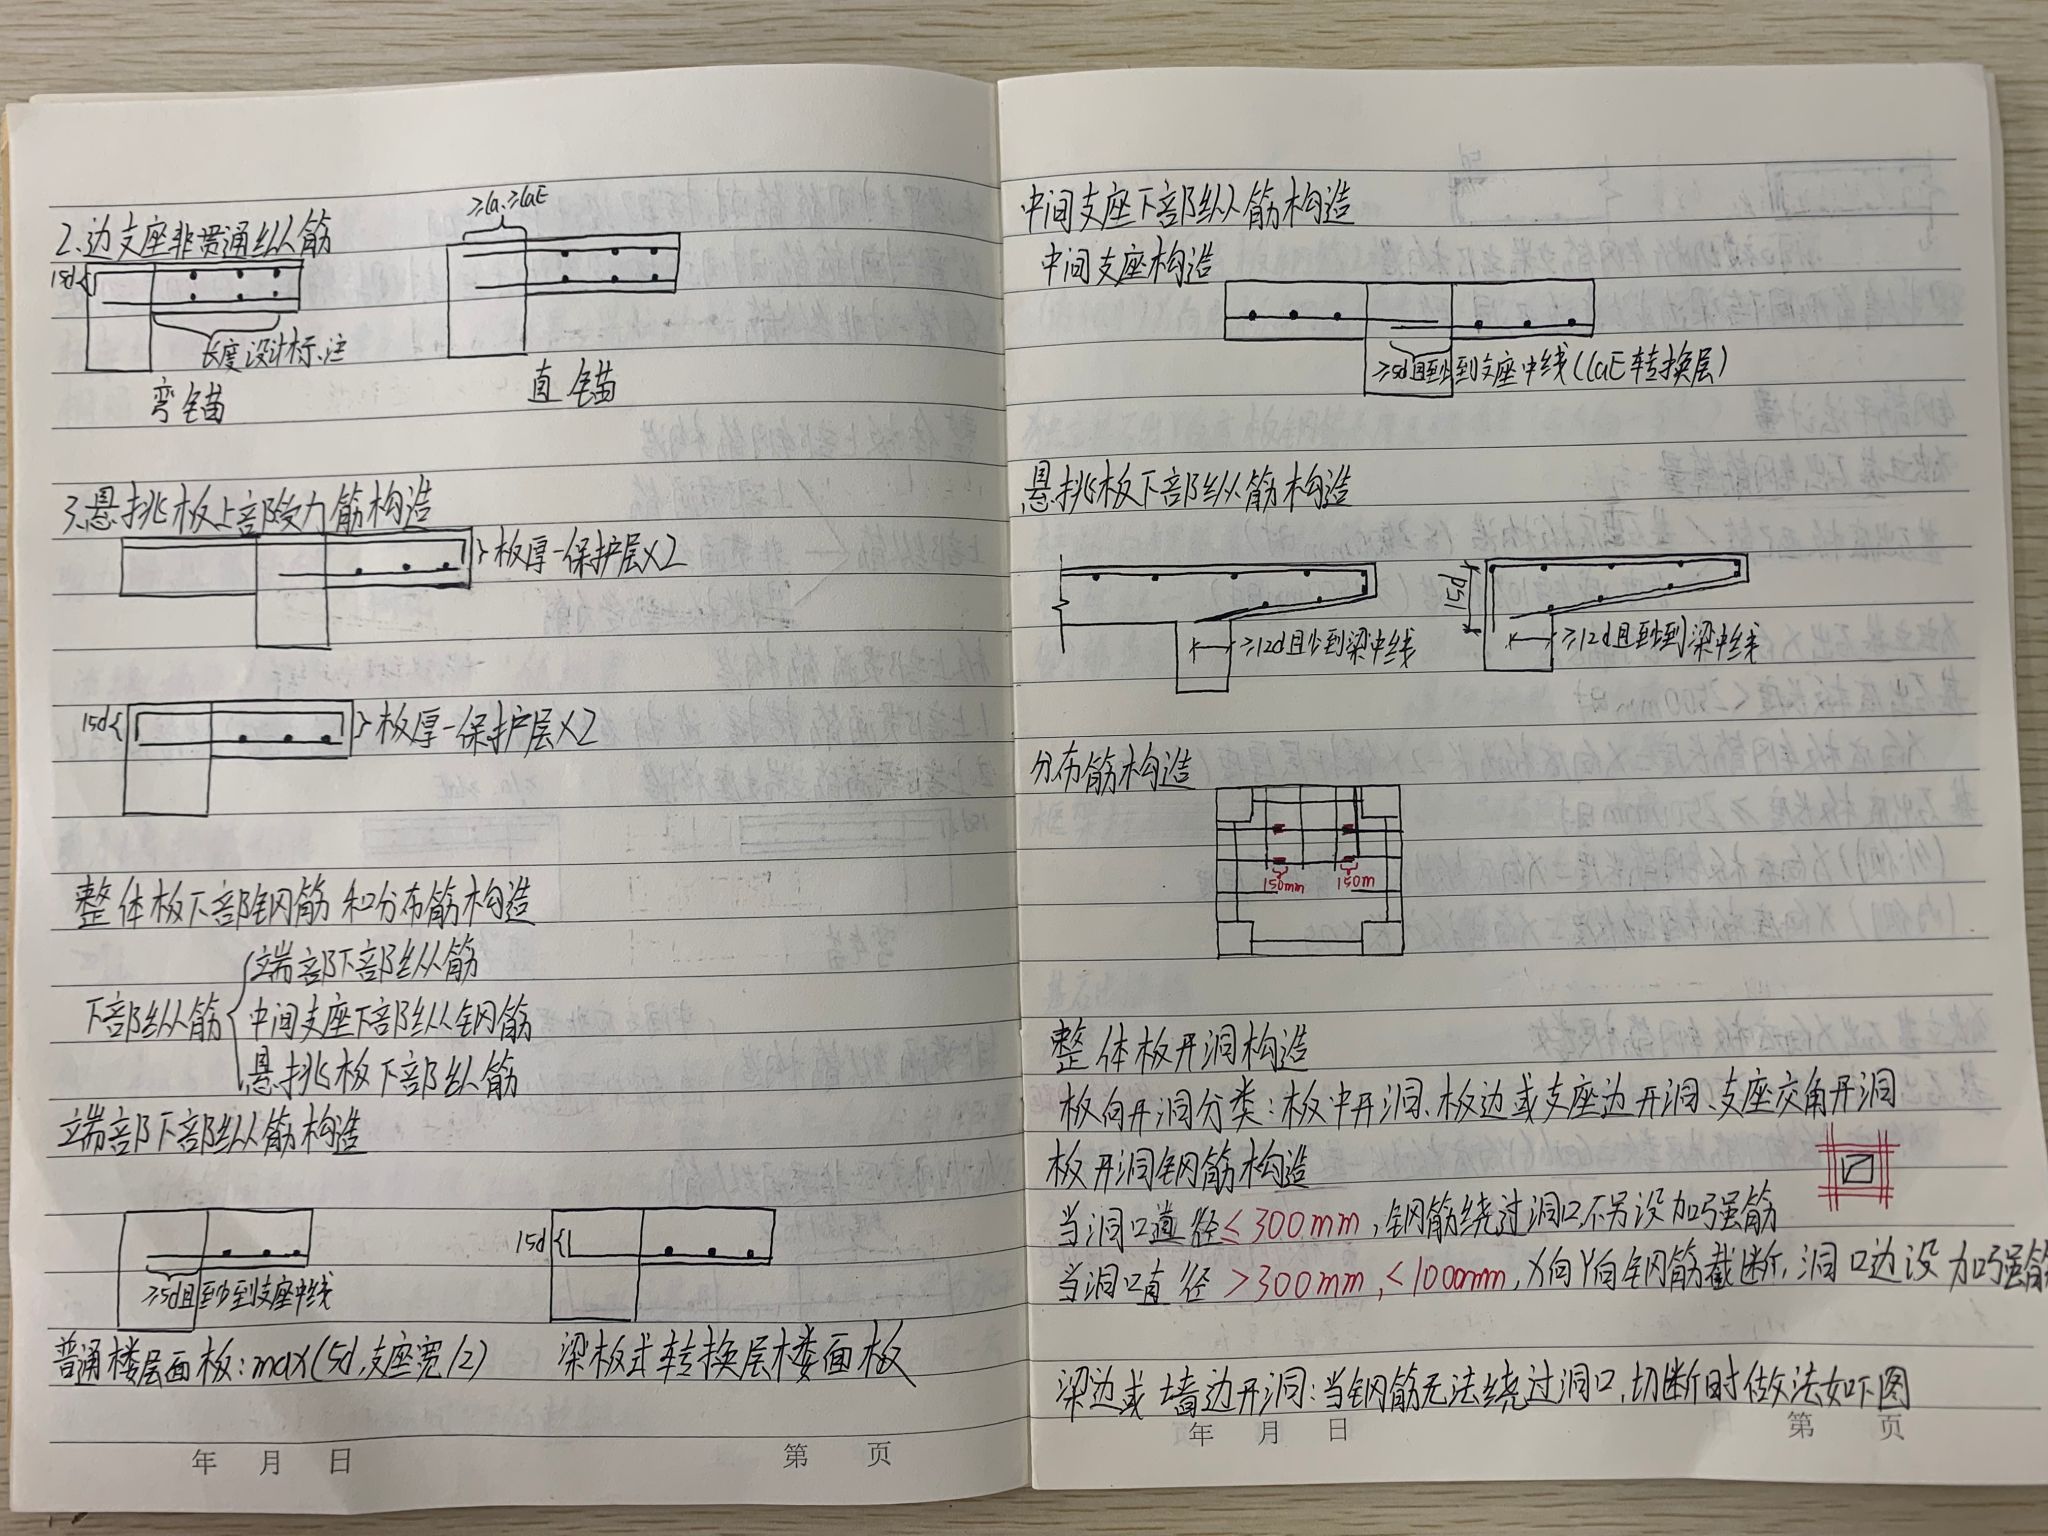 2、边支座非贯通纵筋
≥la、≥laE
15d
长度设计标注
弯锚
直锚
3、悬挑板上部受力筋构造
板厚-保护层×2
15d
板厚-保护层×2
整体板下部钢筋和分布筋构造
下部纵筋
端部下部纵筋
中间支座下部纵钢筋
悬挑板下部纵筋
端部下部纵筋构造
≥5d且至少到支座中线
15d
普通楼层面板:max(5d,支座宽/2)
梁板式转换层楼面板
年 月 日
第 页
中间支座下部纵筋构造
中间支座构造
≥5d且至少到支座中线(laE转换层)
悬挑板下部纵筋构造
≥12d且少到梁中线
15d
≥12d且至少到梁中线
分布筋构造
150mm
150m
整体板开洞构造
板向开洞分类:板中开洞、板边或支座边开洞、支座交角开洞
板开洞钢筋构造
当洞口直径≤300mm,钢筋绕过洞口不另设加强筋
当洞口直径>300mm,<1000mm,X向Y向钢筋截断,洞口边设加强筋
梁边或墙边开洞:当钢筋无法绕过洞口,切断时做法如下图
年 月 日
第 页